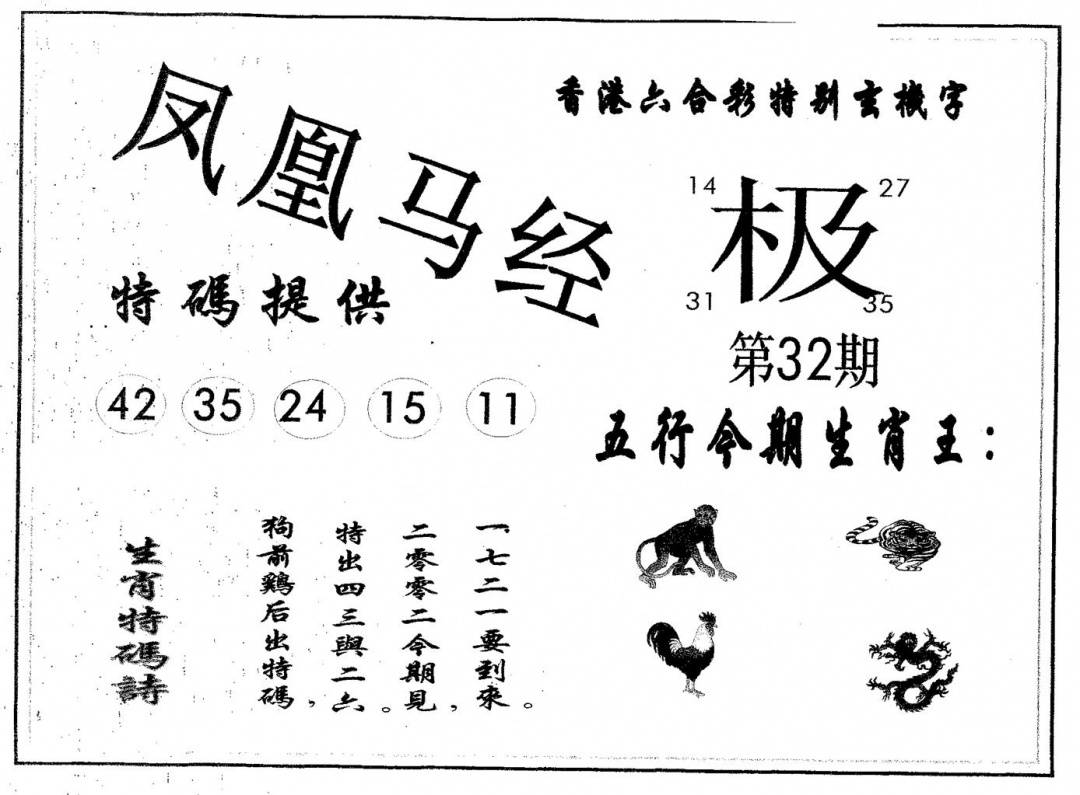 凤凰马经
香港六合彩特别玄機字
14 27
极
31 35
第32期
特碼提供
42 35 24 15 11
五行今期生肖王：
生肖特碼詩
狗前鷄后出特碼，
特出四三與二六。
二零零二今期見，
一七二一要到來。